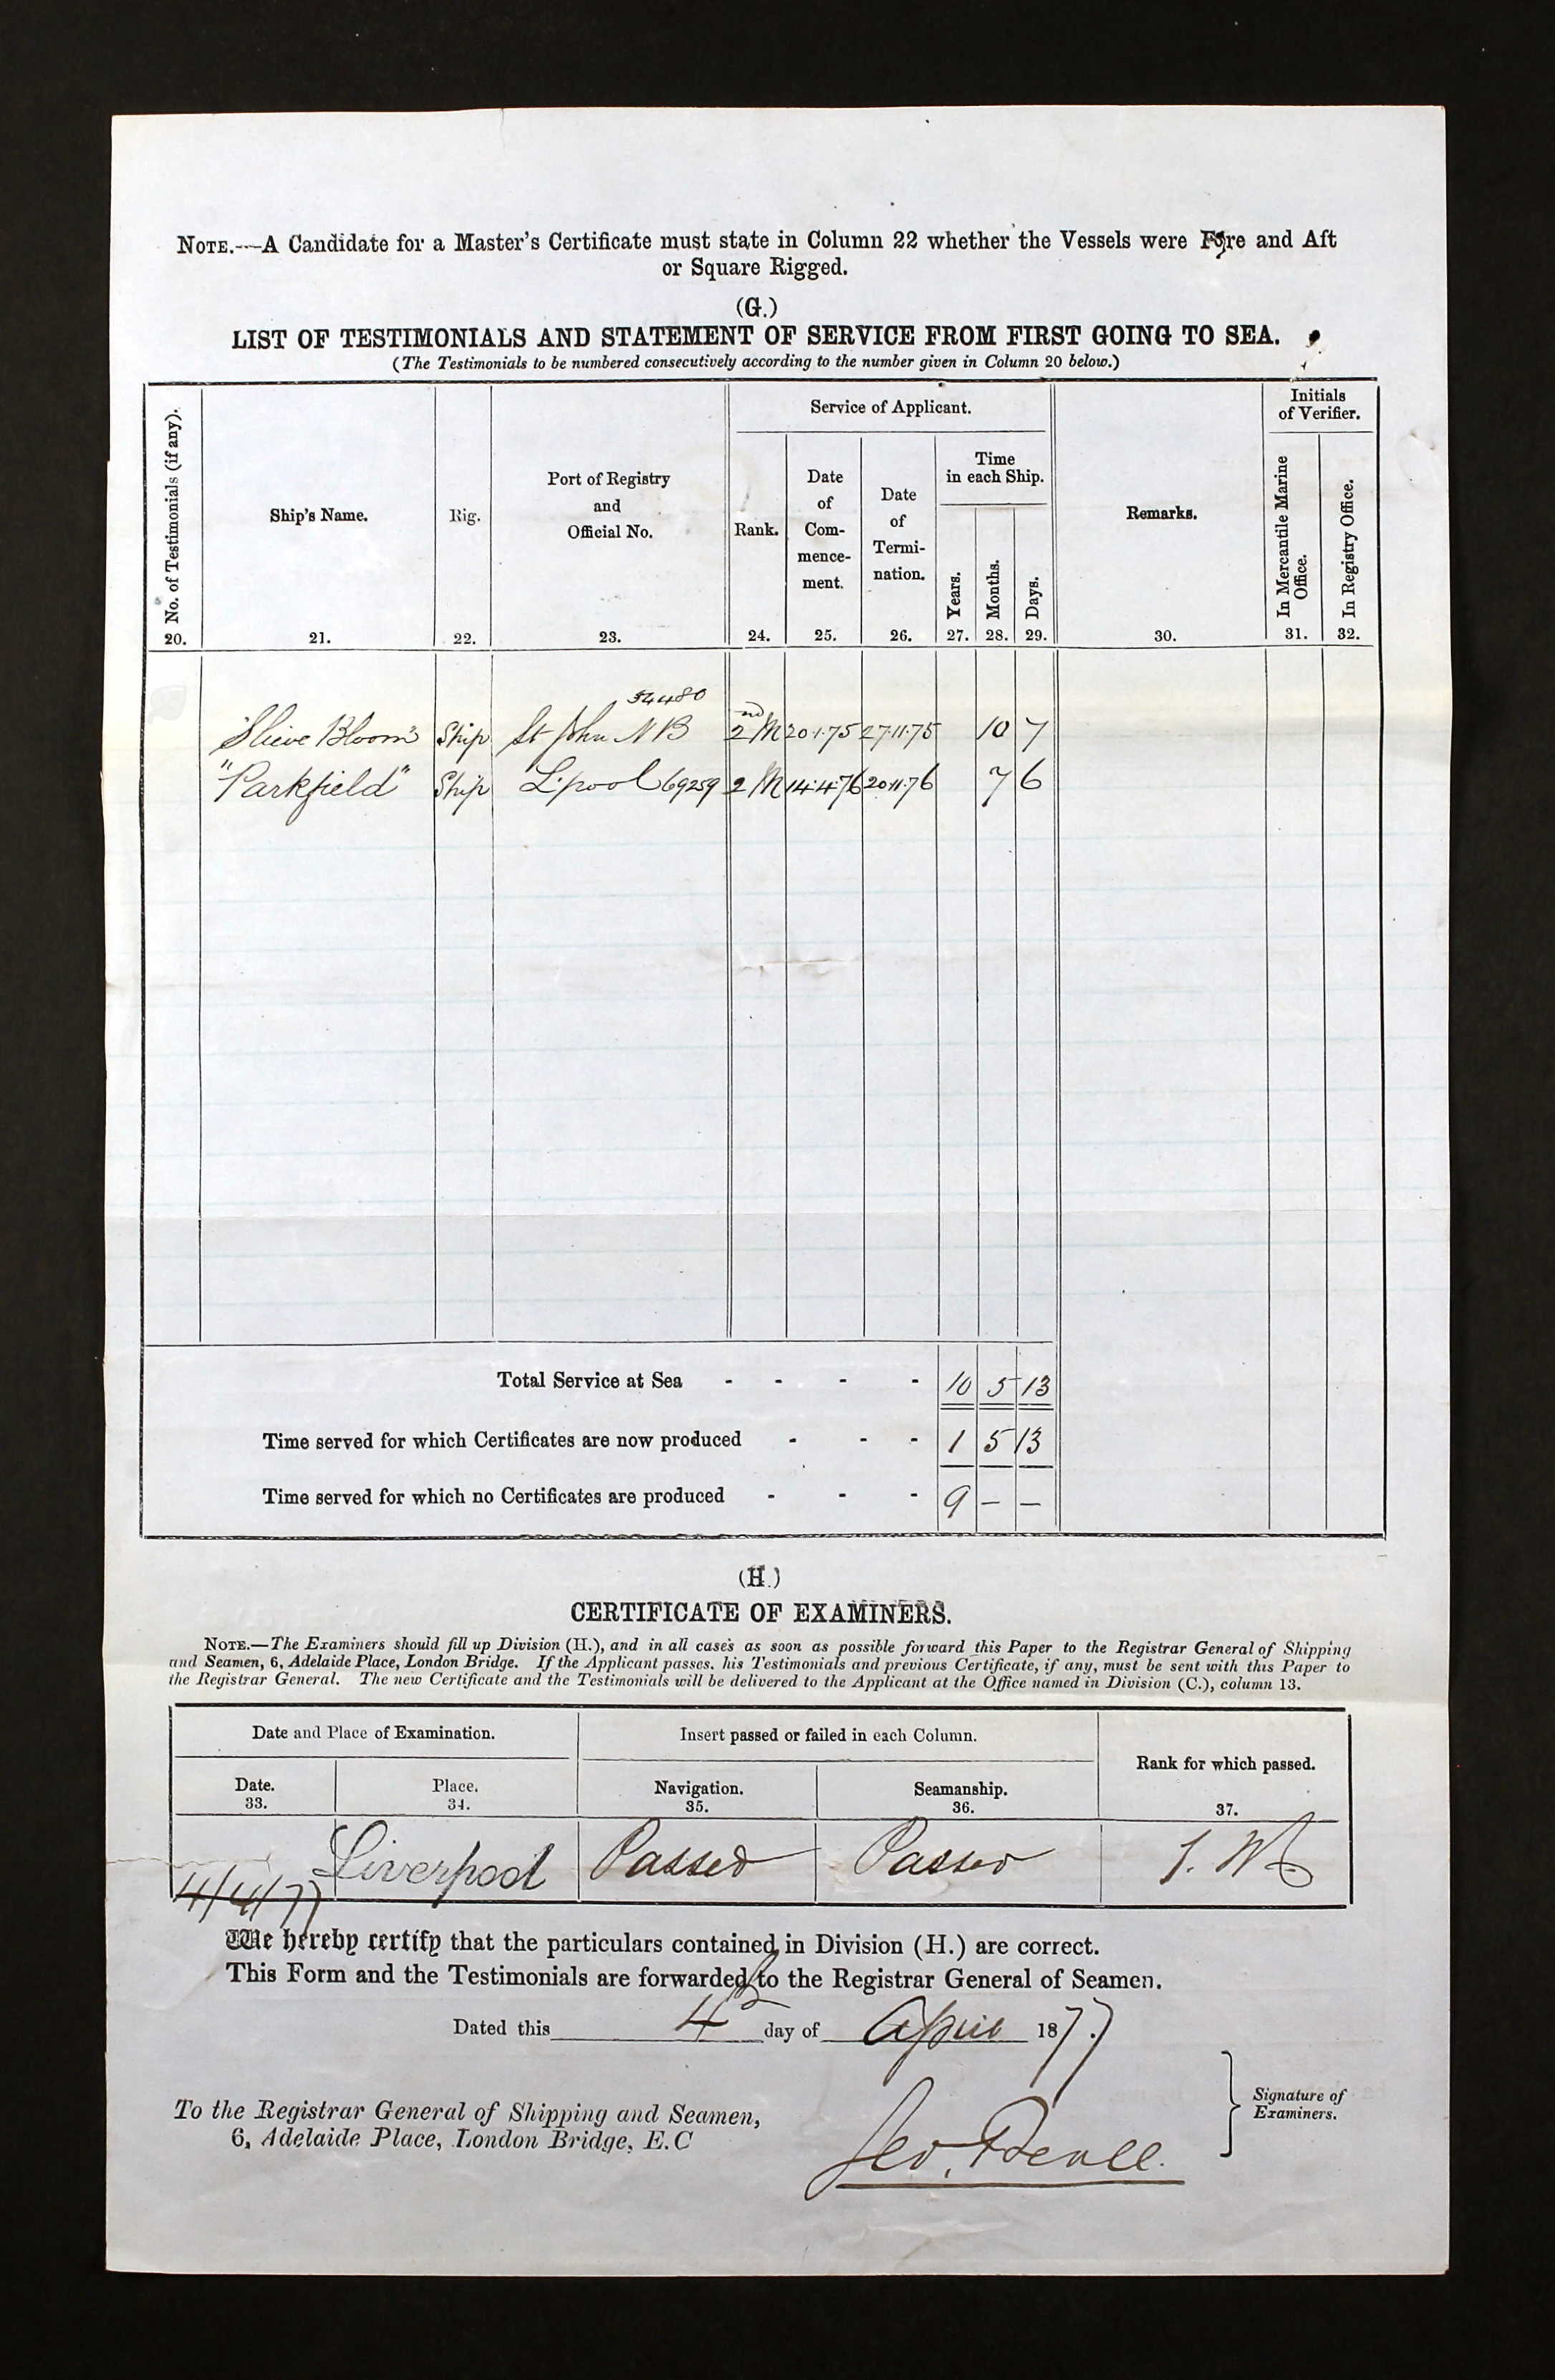 NOTE.—A Candidate for a Master's Certificate must state in Column 22 whether the Vessels were Fore and Aft
or Square Rigged.
(G.)
LIST OF TESTIMONIALS AND STATEMENT OF SERVICE FROM FIRST GOING TO SEA.
(The Testimonials to be numbered consecutively according to the number given in Column 20 below.)
No. of Testimonials (if any).
20.
Ship's Name.
21.
Rig.
22.
Port of Registry
and
Official No.
23.
Service of Applicant.
Rank.
24.
Date
of
Com-
mence-
ment.
25.
Date
of
Termi-
nation.
26.
Time
in each Ship.
Years.
27.
Months.
28.
Days.
29.
Remarks.
30.
Initials
of Verifier.
In Mercantile Marine
Office.
31.
In Registry Office.
32.
54480
"Slieve Bloom" Ship St John NB 2nd M 20.1.75 27.11.75 10 7
"Parkfield" Ship L'pool 69259 2 M 14.4.76 20.11.76 7 6
Total Service at Sea - - - - 10 5 13
Time served for which Certificates are now produced - - - 1 5 13
Time served for which no Certificates are produced - - - 9 – –
(H.)
CERTIFICATE OF EXAMINERS.
NOTE.—The Examiners should fill up Division (H.), and in all cases as soon as possible forward this Paper to the Registrar General of Shipping
and Seamen, 6, Adelaide Place, London Bridge. If the Applicant passes, his Testimonials and previous Certificate, if any, must be sent with this Paper to
the Registrar General. The new Certificate and the Testimonials will be delivered to the Applicant at the Office named in Division (C.), column 13.
Date and Place of Examination.
Insert passed or failed in each Column.
Rank for which passed.
Date.
33.
Place.
34.
Navigation.
35.
Seamanship.
36.
37.
4/4/77 Liverpool Passed Passed
We hereby certify that the particulars contained in Division (H.) are correct.
This Form and the Testimonials are forwarded to the Registrar General of Seamen.
Dated this 4th day of April 1877.
To the Registrar General of Shipping and Seamen,
6, Adelaide Place, London Bridge, E.C
Geo.
Signature of
Examiners.